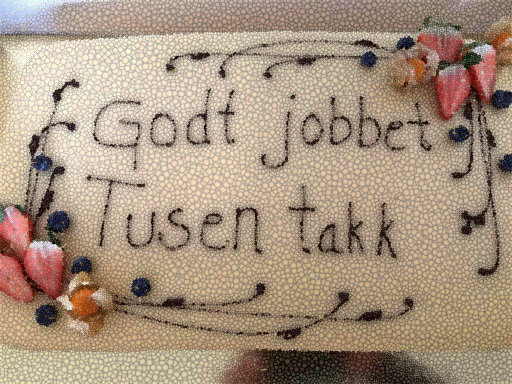 Godt jobbet
Tusen takk